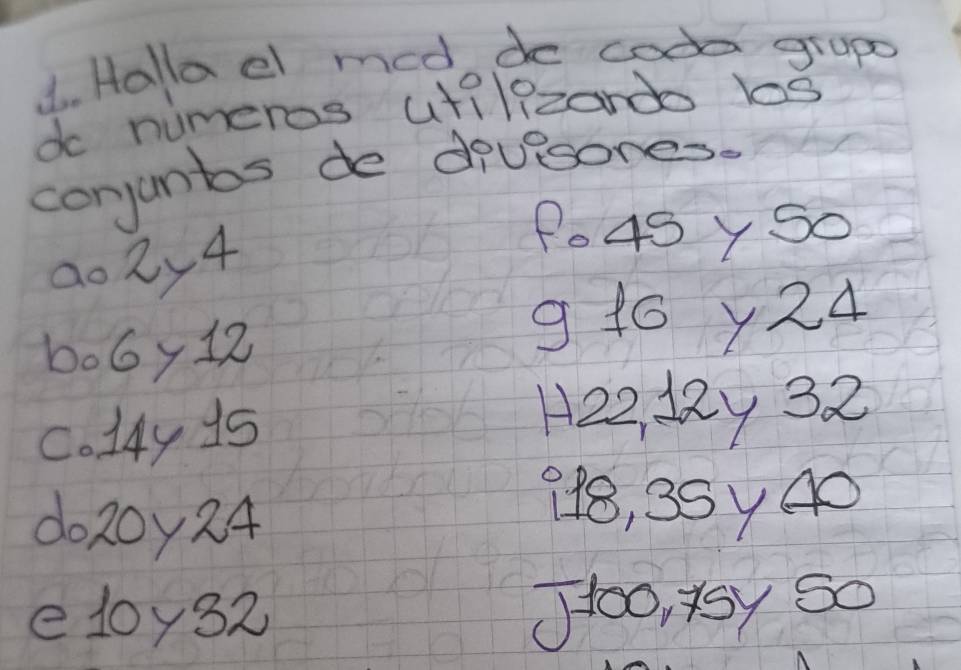 1. Halla el mcd de cada grupo
de números utilizando los
conjuntos de divisores.
a. 2 y 4
b. 6 y 12
c. 14 y 15
d. 20 y 24
e 10 y 32
f. 45 y 50
g 16 y 24
H 22, 12 y 32
i 18, 35 y 40
J 100, 75 y 50